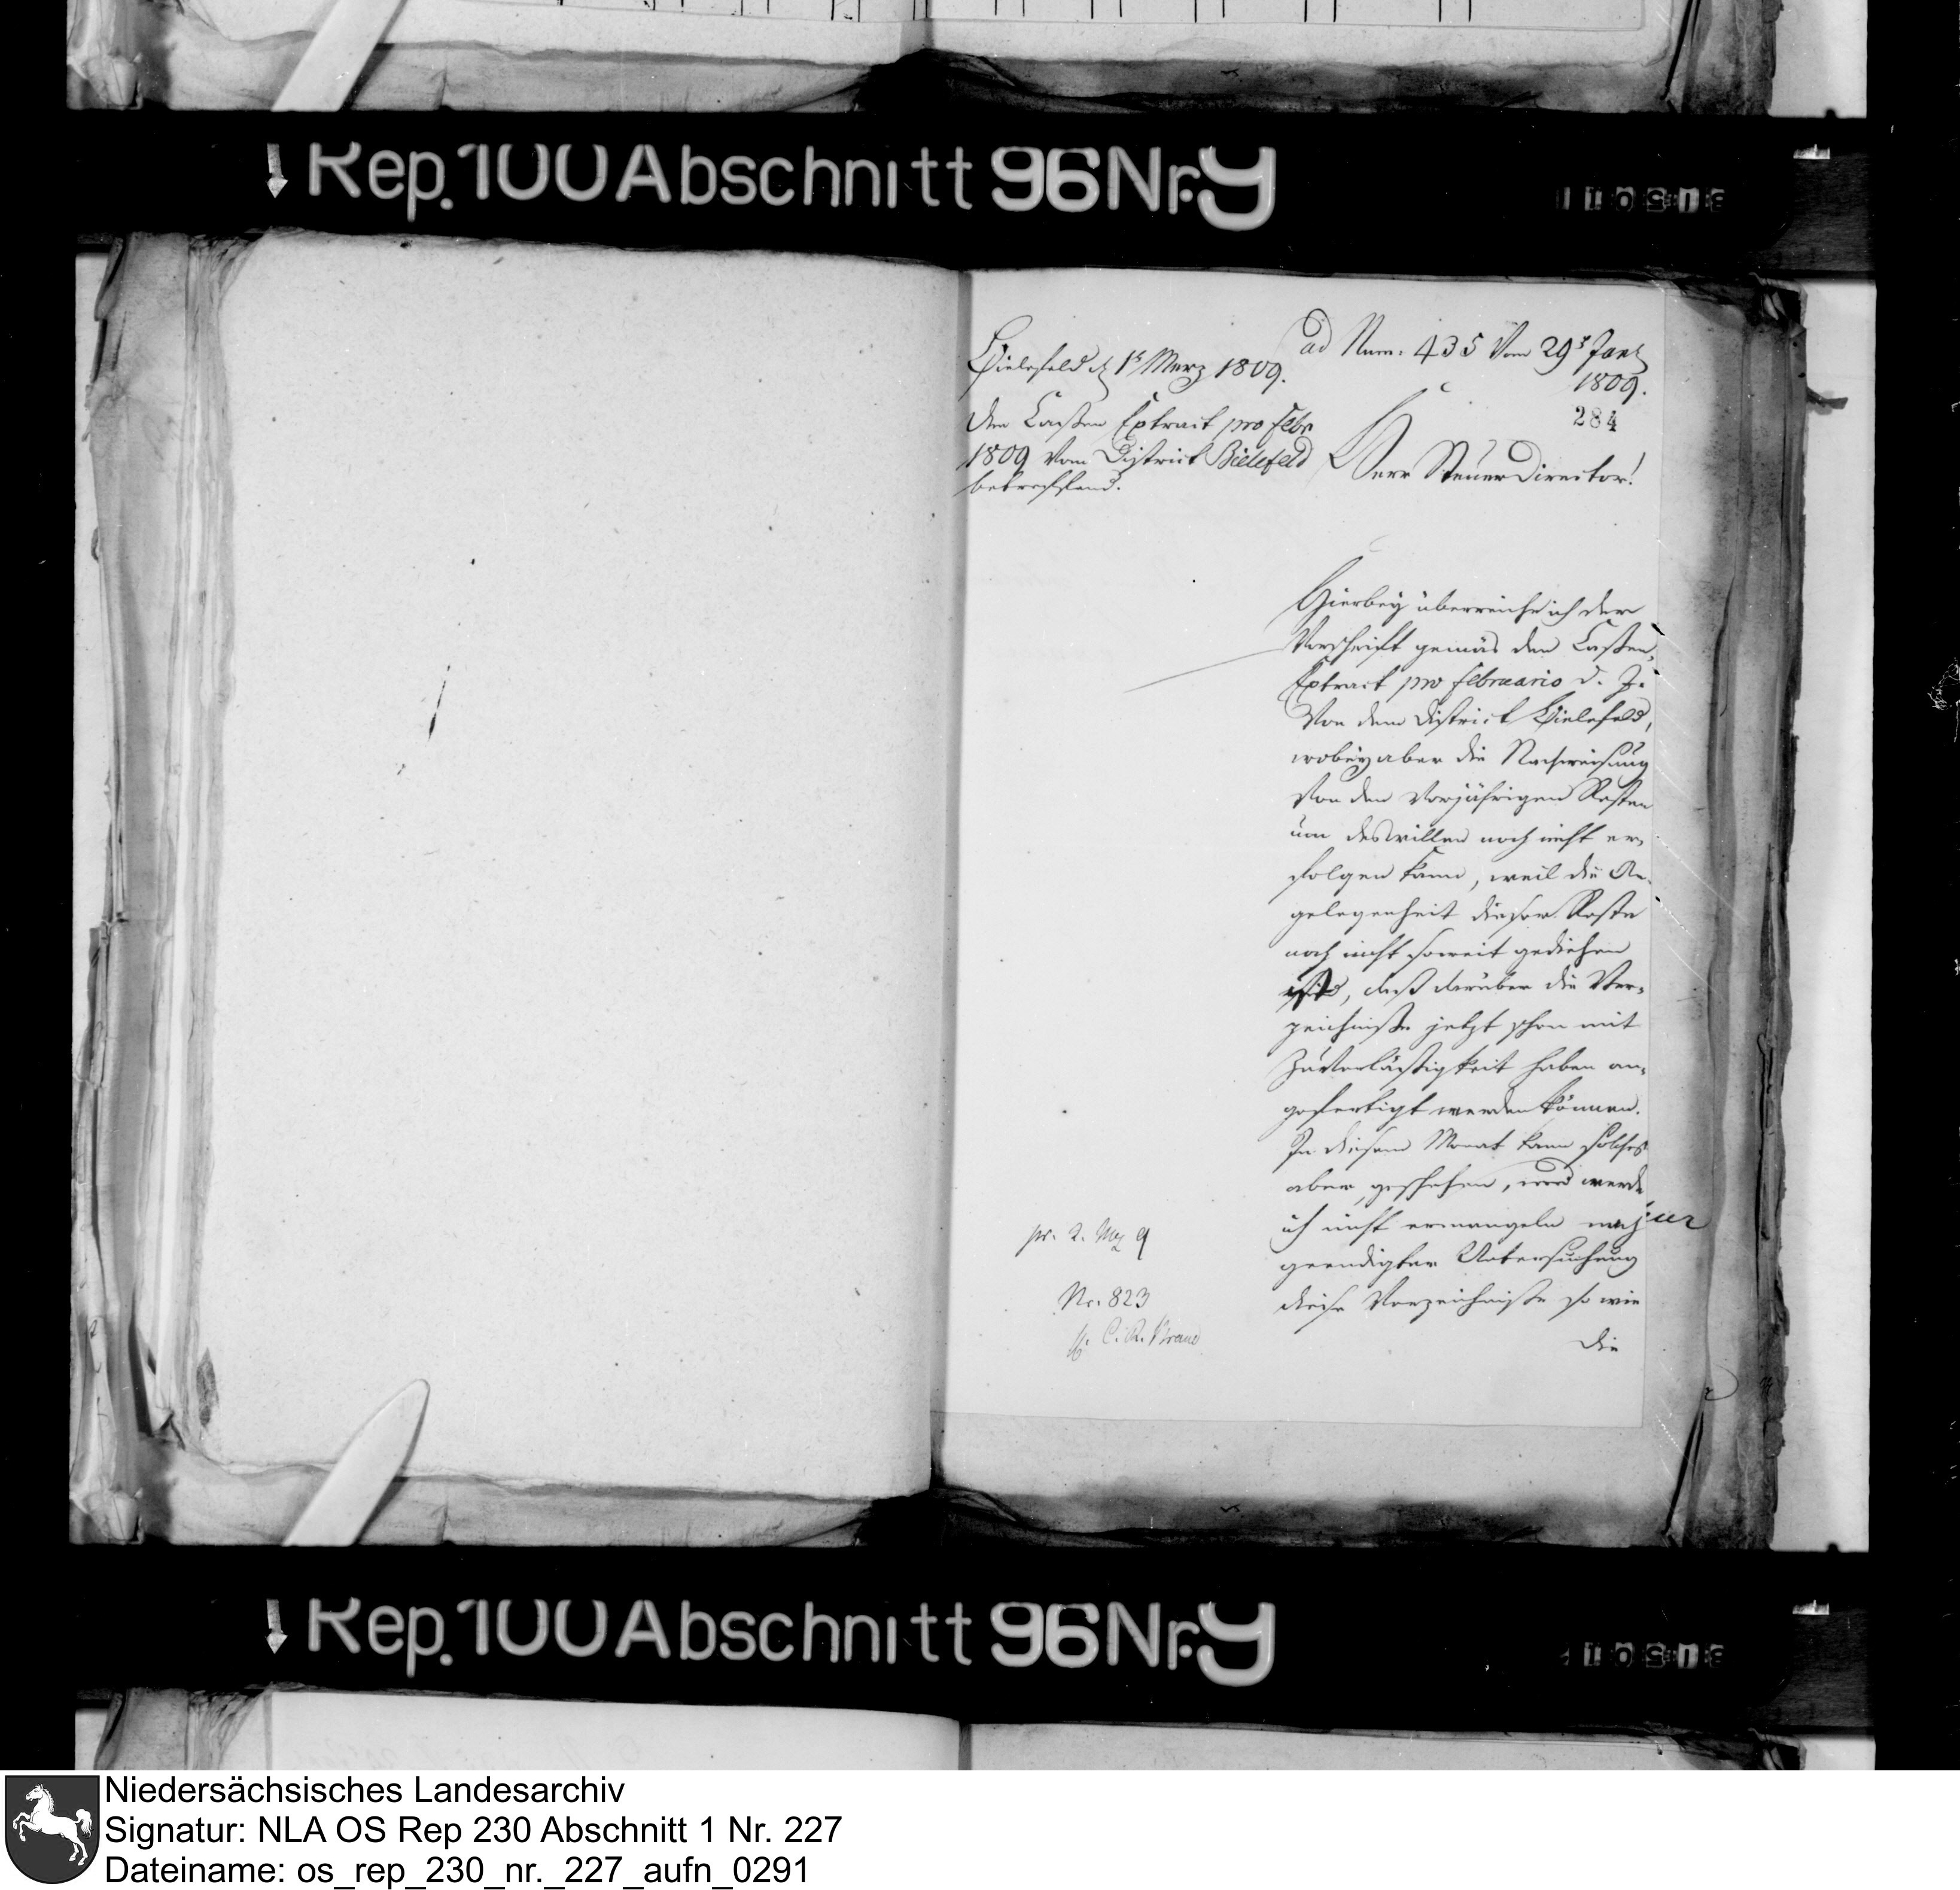 Rep. 100 Abschnitt 96 Nr. 9
Bielefeld d 1t Merz 1809.
ad Num: 435 vom 29t Janr
1809.
284
Den Cassen Extract pro Febr
1809 vom District Bielefeld
betreffend.
Herr Steuer Director!
Hierbey überreiche ich der
Vorschrift gemäs den Cassen,
Extract pro Februario d. J.
von dem District Bielefeld,
wobey aber die Nachweisung
von den vorjährigen Resten
um deswillen noch nicht er,
folgen kann, weil die An-
gelegenheit dieser Reste
noch nicht soweit gediehen
ist, daß darüber die Ver-
zeichniße jetzt schon mit
Zuverläßigkeit haben an-
gefertigt werden können.
In diesem Monat kann solches
aber geschehen, und werde
ich nicht ermangeln nach
geendigter Untersuchung
diese Verzeichniße so wie
die
pr. 2. Mz 9
Nr. 823
C. R.
Rep. 100 Abschnitt 96 Nr. 9
Niedersächsisches Landesarchiv
Signatur: NLA OS Rep 230 Abschnitt 1 Nr. 227
Dateiname: os_rep_230_nr._227_aufn_0291